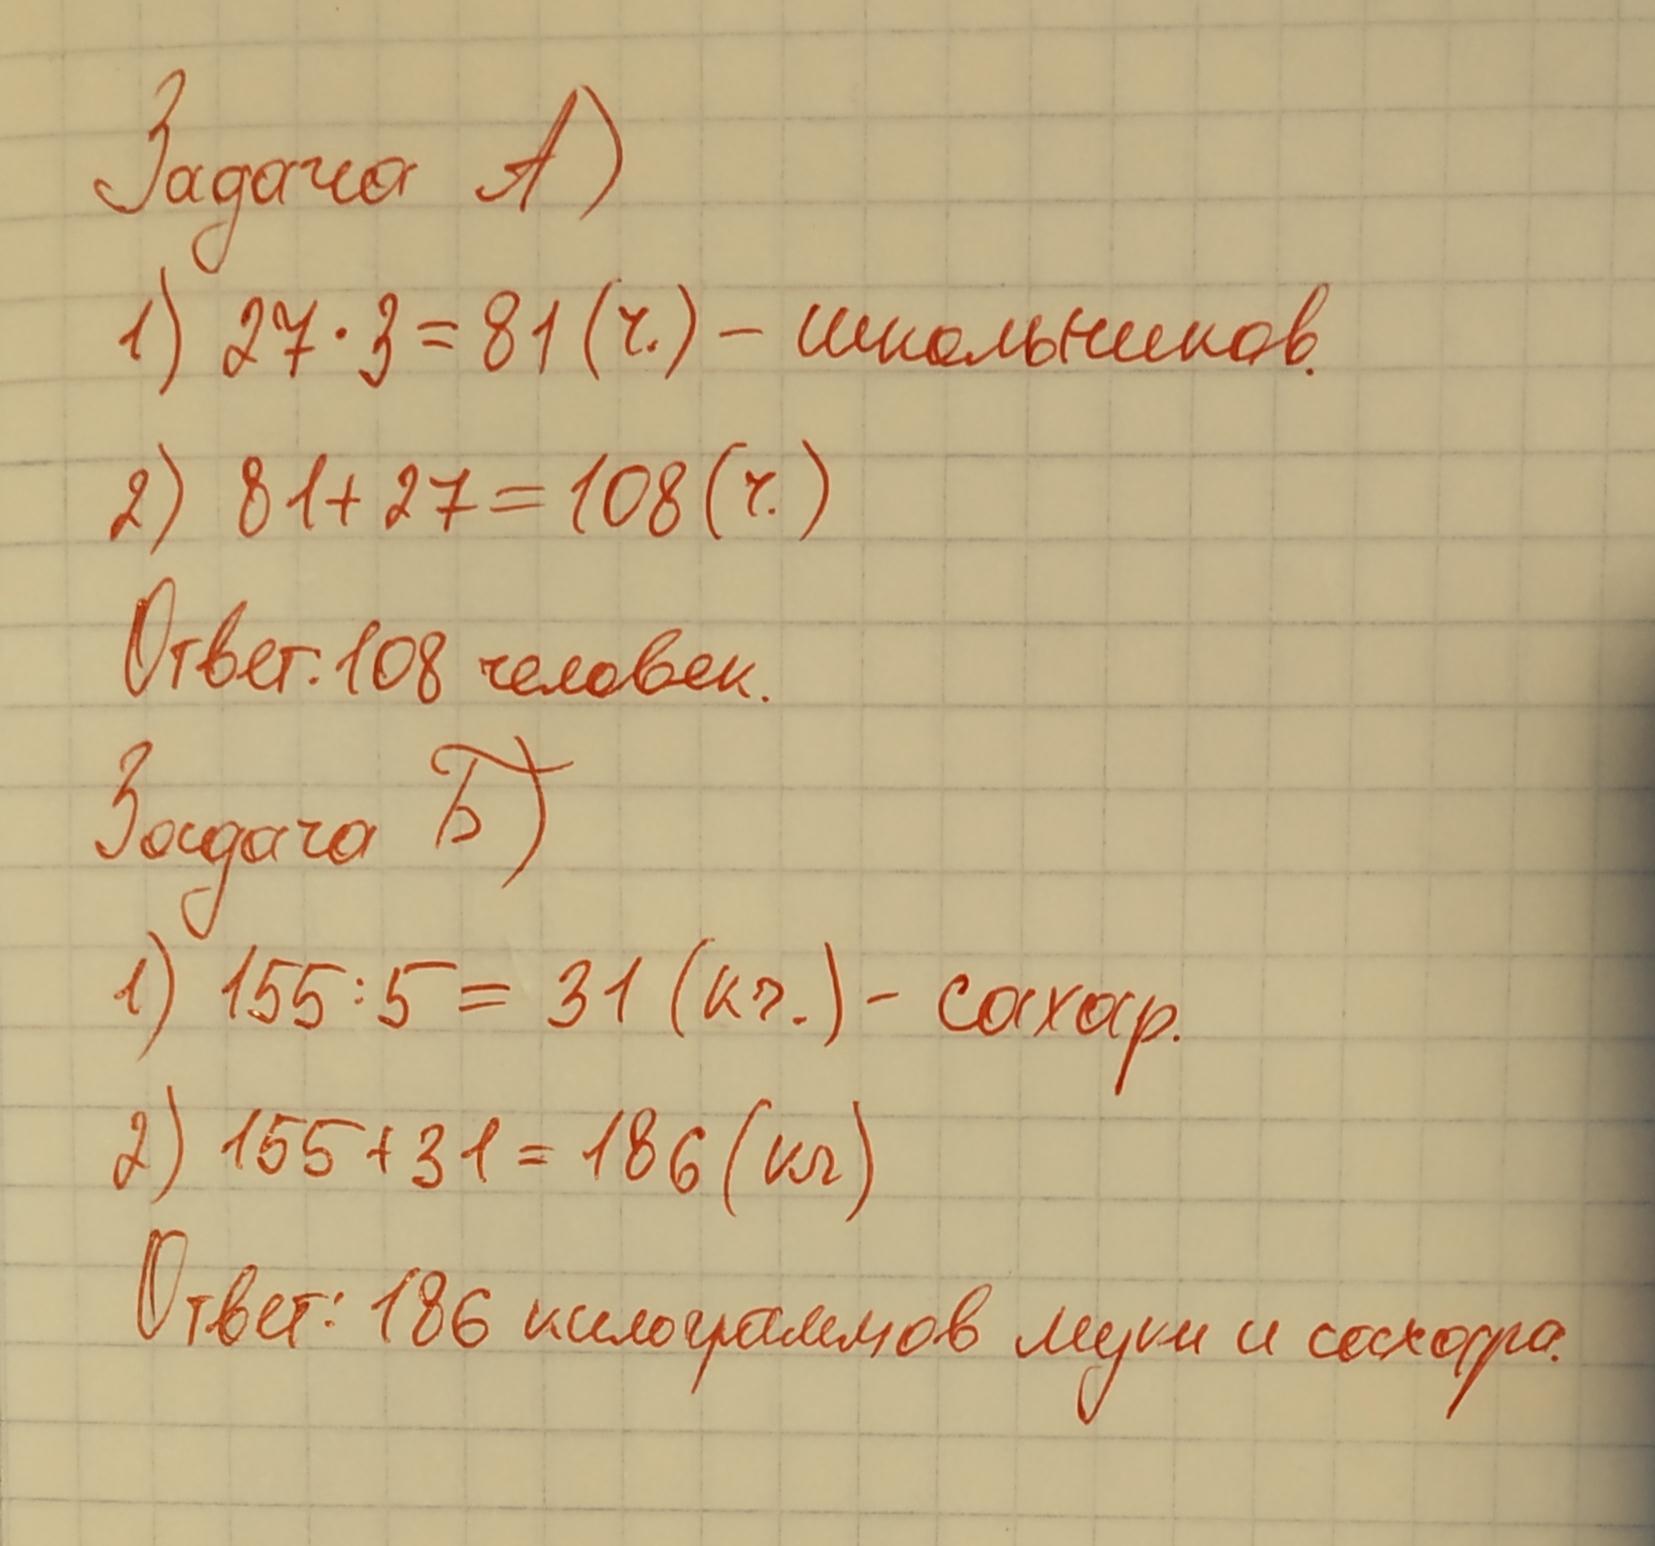 Задача А)
1) 27·3=81(ч.) – школьников.
2) 81+27=108(ч.)
Ответ: 108 человек.
Задача Б)
1) 155:5= 31 (кг.) – сахар.
2) 155+31=186(кг)
Ответ: 186 килограммов муки и сахара.